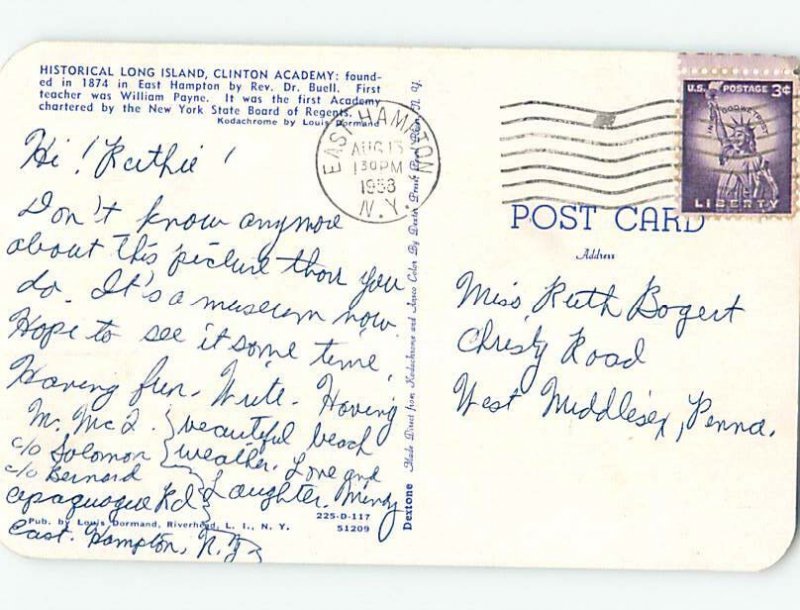 HISTORICAL LONG ISLAND, CLINTON ACADEMY: found-
ed in 1874 in East Hampton by Rev. Dr. Buell. First
teacher was William Payne. It was the first Academy
chartered by the New York State Board of Regents.
Kodachrome by Louis Dormand
Hi! Ruthie!
Don't know anymore
about this picture than you
do. It's a museum now.
Hope to see it some time.
Having fun. Write. Having
beautiful beach
weather. Love and
Laughter. Mindy
M. Mc Q.
c/o Solomon
c/o Bernard
Apaquogue Rd
East Hampton, N.Y.
Pub. by Louis Dormand, Riverhead, L. I., N. Y.
225-D-117
51209
Dextone Made Direct from Kodachrome and Ansco Color By Dexter Press N. Y.
EAST HAMPTON
AUG 15
1 30 PM
1958
N.Y.
U.S. POSTAGE 3¢
IN GOD WE TRUST
LIBERTY
POST CARD
Address
Miss Ruth Bogert
Christy Road
West Middlesex, Penna.